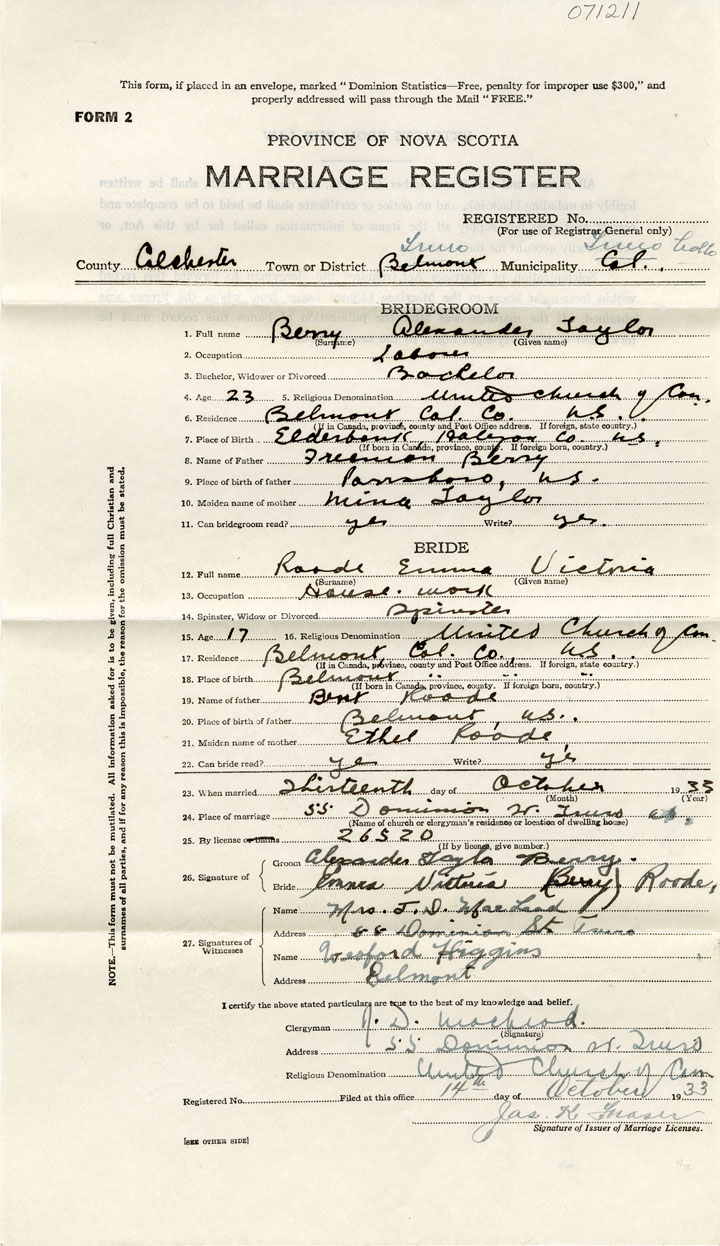 071211
This form, if placed in an envelope, marked "Dominion Statistics—Free, penalty for improper use $300," and
properly addressed will pass through the Mail "FREE."
FORM 2
PROVINCE OF NOVA SCOTIA
MARRIAGE REGISTER
REGISTERED No.
(For use of Registrar General only)
Truro Truro
County Colchester Town or District Belmont Municipality Col.
BRIDEGROOM
1. Full name Berry Alexander Taylor
(Surname) (Given name)
2. Occupation Laborer
3. Bachelor, Widower or Divorced Bachelor
4. Age 23 5. Religious Denomination United Church of Can.
6. Residence Belmont Col. Co. N.S.
(If in Canada, province, county and Post Office address. If foreign, state country.)
7. Place of Birth Elderbank, Halifax Co. N.S.
(If born in Canada, province, county. If foreign born, country.)
8. Name of Father Freeman Berry
9. Place of birth of father Parrsboro, N.S.
10. Maiden name of mother Mina Taylor
11. Can bridegroom read? yes Write? yes.
BRIDE
12. Full name Roode Emma Victoria
(Surname) (Given name)
13. Occupation House-work
14. Spinster, Widow or Divorced Spinster
15. Age 17 16. Religious Denomination United Church of Can.
17. Residence Belmont, Col. Co., N.S.
(If in Canada, province, county and Post Office address. If foreign, state country.)
18. Place of birth Belmont " " "
(If born in Canada, province, county. If foreign born, country.)
19. Name of father Bent Roode
20. Place of birth of father Belmont, N.S.
21. Maiden name of mother Ethel Roode
22. Can bride read? yes Write? yes
23. When married Thirteenth day of October 1933
(Month) (Year)
24. Place of marriage 55 Dominion St. Truro N.S.
(Name of church or clergyman's residence or location of dwelling house)
25. By license or banns 26520
(If by license, give number.)
26. Signature of
Groom Alexander Taylor Berry.
Bride Emma Victoria (Berry) Roode,
27. Signatures of Witnesses
Name Mrs. J. D. MacLeod
Address 55 Dominion St. Truro
Name Higgins
Address Belmont
I certify the above stated particulars are true to the best of my knowledge and belief.
Clergyman J. D. MacLeod.
(Signature)
Address 55 Dominion St. Truro
Religious Denomination United Church of Can
Registered No. Filed at this office 14th day of October 1933
Jas. K. Fraser
Signature of Issuer of Marriage Licenses.
[SEE OTHER SIDE]
NOTE.—This form must not be mutilated. All information asked for is to be given, including full Christian and
surnames of all parties, and if for any reason this is impossible, the reason for the omission must be stated.